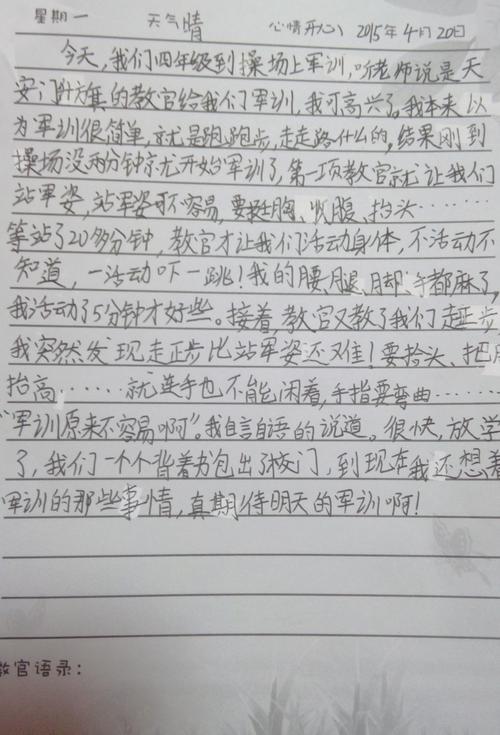 星期一 天气晴 心情开心 2015年4月20日
今天,我们四年级到操场上军训,听老师说是天
安门升旗的教官给我们军训,我可高兴了。我本来以
为军训很简单,就是跑跑步,走走路什么的,结果刚到
操场没两分钟就开始军训了,第一项教官就让我们
站军姿,站军姿可不容易,要挺胸、收腹、抬头……
等站了20多分钟,教官才让我们活动身体,不活动不
知道,一活动吓一跳!我的腰、腿、脚、手都麻了,
我活动了5分钟才好些。接着,教官又教了我们走正步,
我突然发现走正步比站军姿还难!要抬头、把
抬高……就连手也不能闲着,手指要弯曲……
"军训原来不容易啊"。我自言自语的说道。很快,放学
了,我们一个个背着书包出了校门,到现在我还想着
军训的那些事情,真期待明天的军训啊!
教官语录: